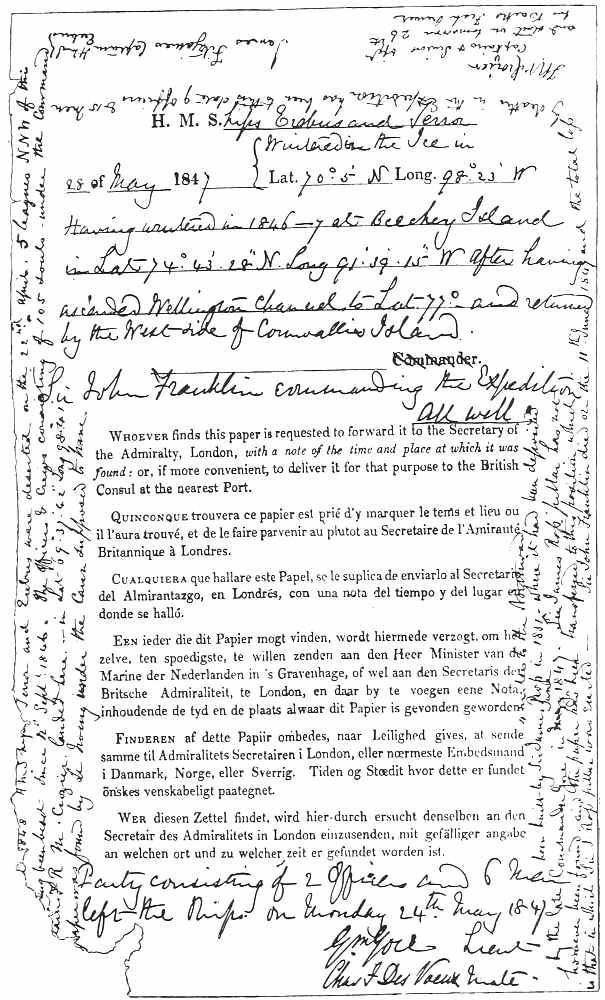 H. M. S. hips Erebus and Terror
Wintered in the Ice in
28 of May 1847 Lat. 70° 5' N Long. 98° 23' W
Having wintered in 1846–7 at Beechey Island
in Lat 74° 43' 28" N. Long 91° 39' 15" W After having
ascended Wellington Channel to Lat 77° and returned
by the West side of Cornwallis Island.
Commander.
Sir John Franklin commanding the Expedition
All well
WHOEVER finds this paper is requested to forward it to the Secretary of
the Admiralty, London, with a note of the time and place at which it was
found: or, if more convenient, to deliver it for that purpose to the British
Consul at the nearest Port.
QUINCONQUE trouvera ce papier est prié d'y marquer le tems et lieu ou
il l'aura trouvé, et de le faire parvenir au plutot au Secretaire de l'Amirauté
Britannique à Londres.
CUALQUIERA que hallare este Papel, se le suplica de enviarlo al Secretario
del Almirantazgo, en Londrés, con una nota del tiempo y del lugar en
donde se halló.
EEN ieder die dit Papier mogt vinden, wordt hiermede verzogt, om het
zelve, ten spoedigste, te willen zenden aan den Heer Minister van de
Marine der Nederlanden in 's Gravenhage, of wel aan den Secretaris der
Britsche Admiraliteit, te London, en daar by te voegen eene Nota,
inhoudende de tyd en de plaats alwaar dit Papier is gevonden geworden
FINDEREN af dette Papiir ombedes, naar Leilighed gives, at sende
samme til Admiralitets Secretairen i London, eller nœrmeste Embedsmand
i Danmark, Norge, eller Sverrig. Tiden og Stœdit hvor dette er fundet
önskes venskabeligt paategnet.
WER diesen Zettel findet, wird hier-durch ersucht denselben an den
Secretair des Admiralitets in London einzusenden, mit gefälliger angabe
an welchen ort und zu welcher zeit er gefundet worden ist.
Party consisting of 2 Officers and 6 Men
left the Ships on Monday 24th May 1847
Gm Gore Lieut
Chas F Des Voeux Mate
1848 HM Ships Terror and Erebus were deserted on the 22nd April. 5 leagues NNW of this
having been beset since 12th Septr 1846. The Officers & Crews consisting of 105 souls under the Command
Captain F R M. Crozier landed here – in Lat 69° 37' 42" Long 98° 41'
paper was found by Lt Irving under the Cairn supposed to have
been built by Sir James Ross in 1831 where it had been deposited
4 miles to the Northward
by the late Commander Gore in June 1847. Sir James Ross' pillar has not
however been found and the paper has been transferred to this position which
is that in which Sir J Ross pillar was erected – Sir John Franklin died on the 11th June 1847 and the total loss
by deaths in the Expedition has been to this date 9 officers & 15 men
James Fitzjames Captain HMS Erebus
F R M Crozier
Captain & Senior Offr
and start on tomorrow 26th
for Backs Fish River